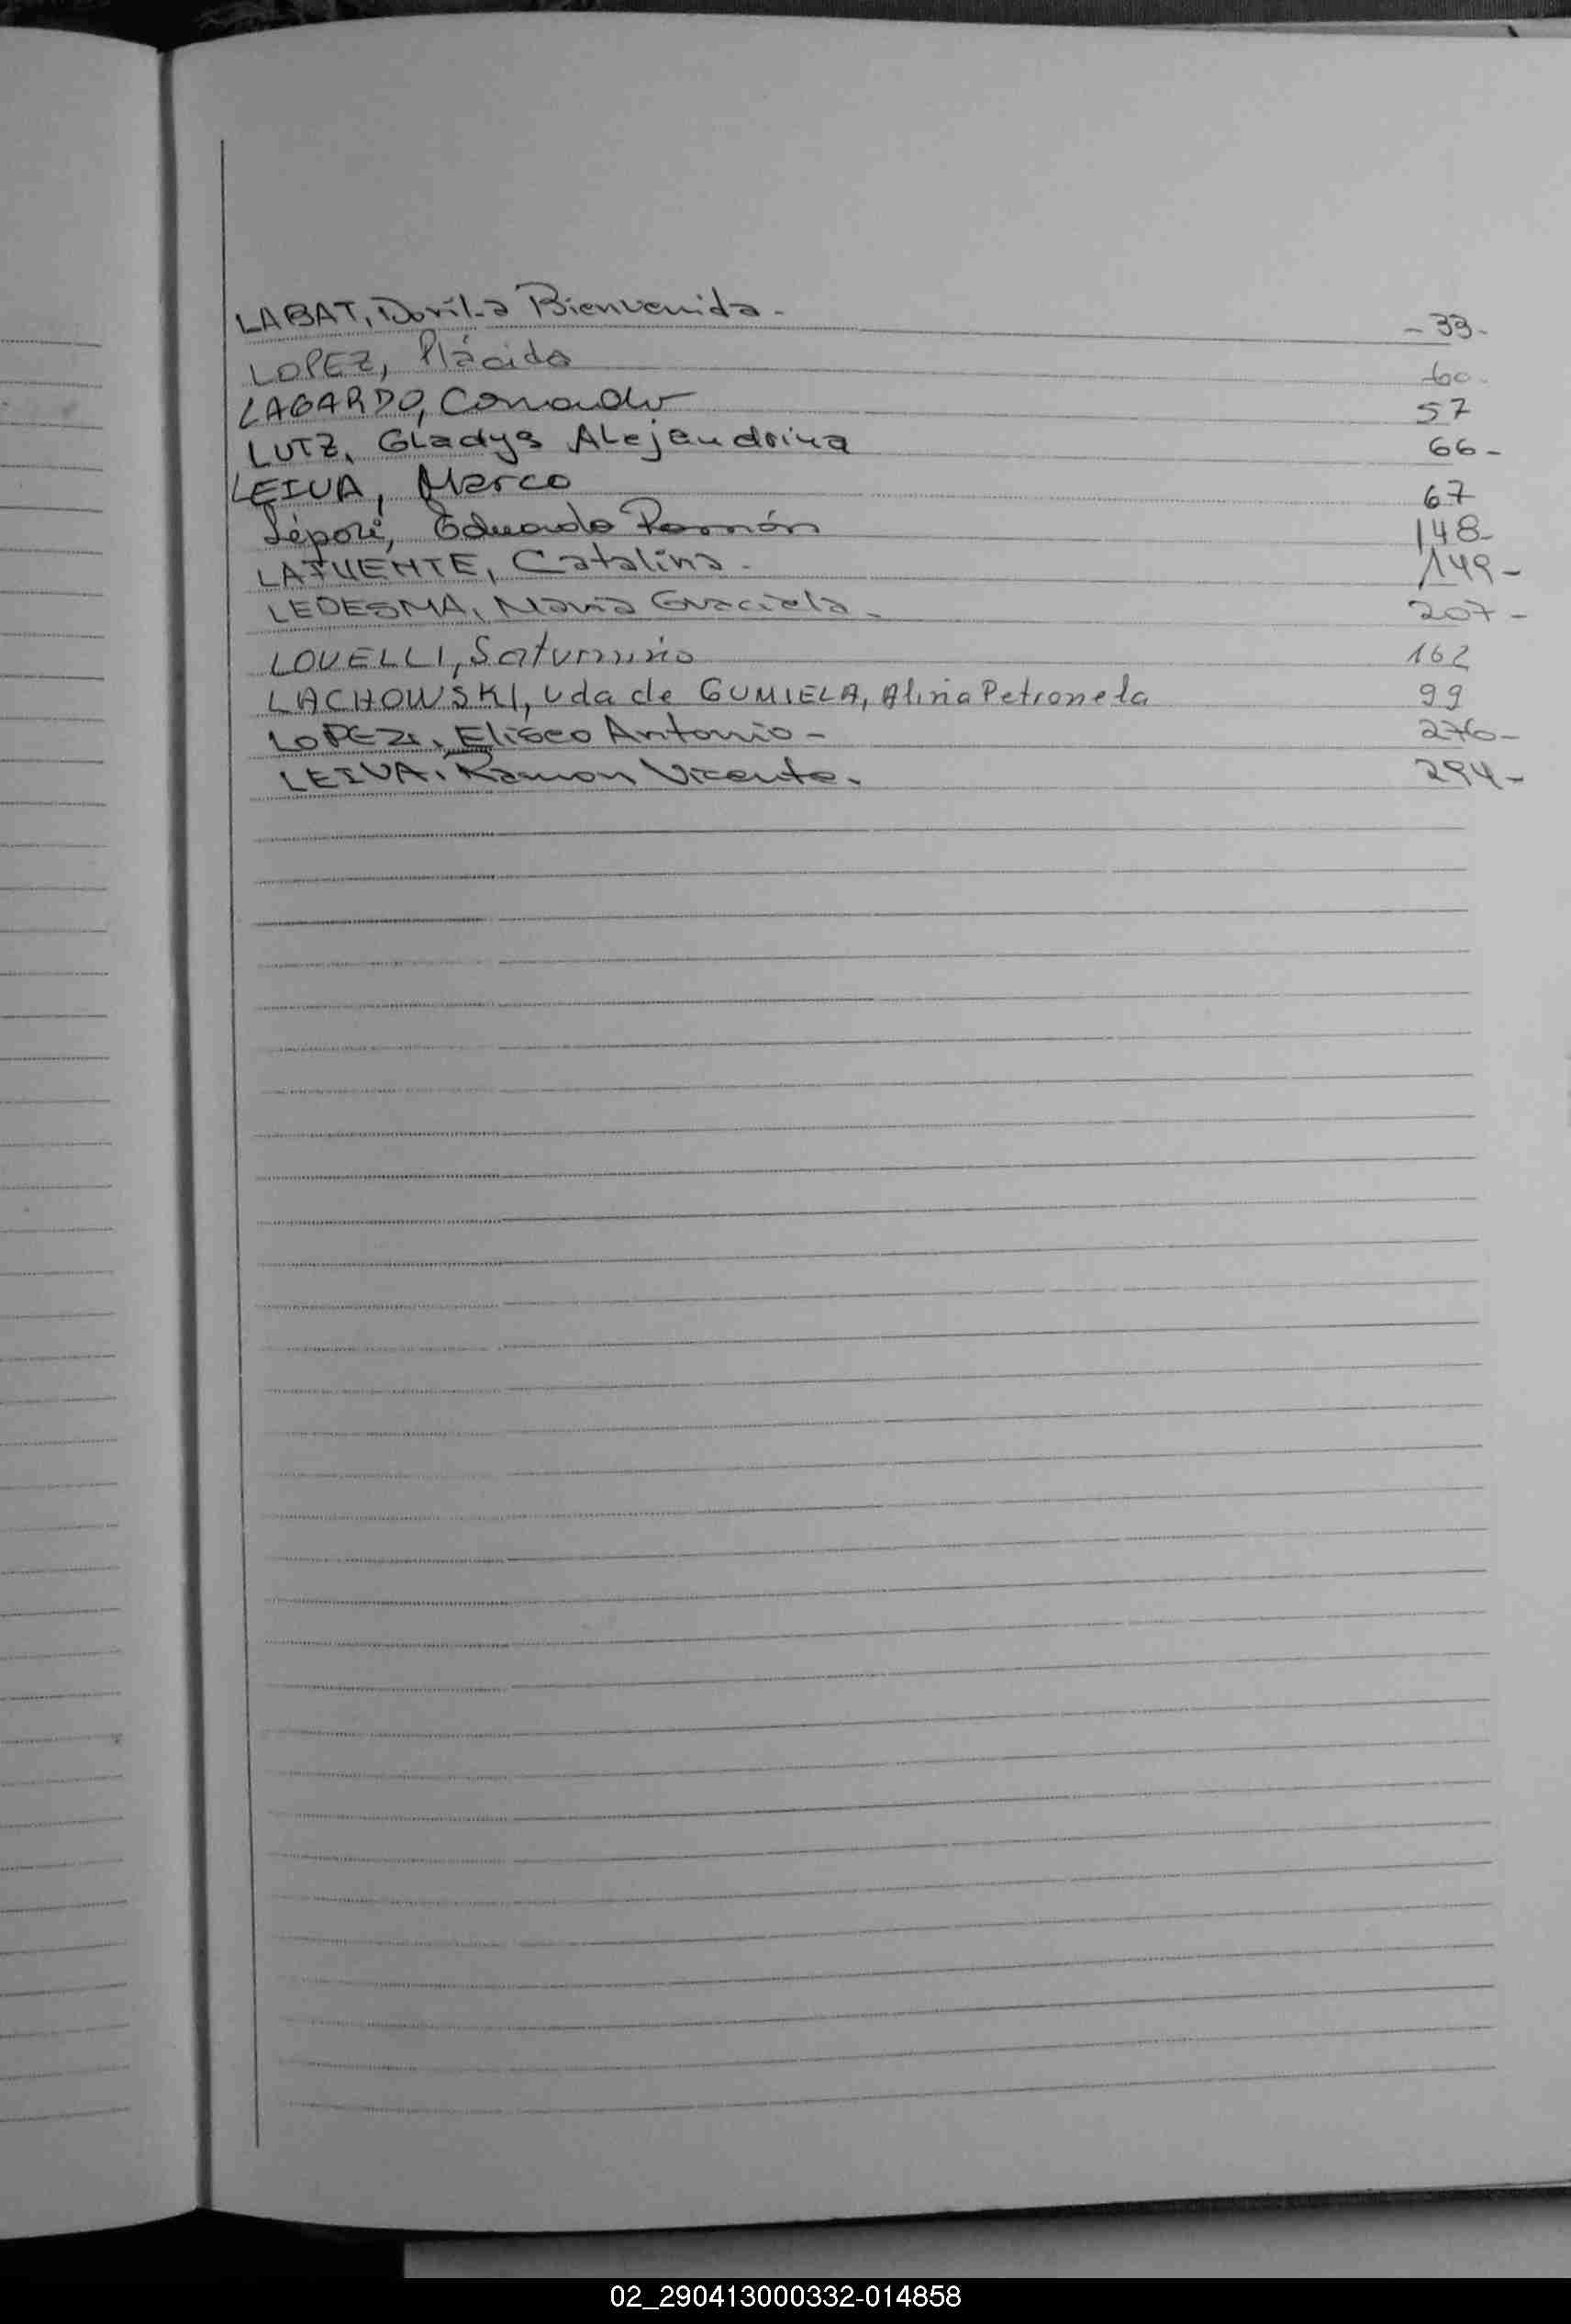 LABAT, Dorila Bienvenida - - 33 -
LOPEZ, Plácido 60 -
LAGARDO, Conrado 57
LUTZ, Gladys Alejandrina 66 -
LEIVA, Marco 67
Lépori, Eduardo Ramón 148 -
LAFUENTE, Catalina - 149 -
LEDESMA, Maria Graciela - 207 -
LOVELLI, Saturnino 162
LACHOWSKI, vda de GUMIELA, Alina Petronela 99
LOPEZ, Eliseo Antonio - 276 -
LEIVA, Ramon Vicente. 294 -
02_290413000332-014858